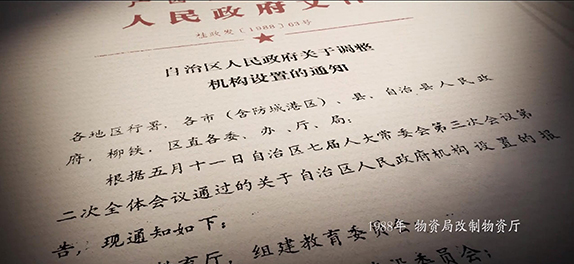 人民政府文件
桂政发〔1988〕63号
自治区人民政府关于调整
机构设置的通知
各地区行署，各市（含防城港区）、县、自治县人民政
府，柳铁，区直各委、办、厅、局：
根据五月十一日自治区七届人大常委会第三次会议第
二次全体会议通过的关于自治区人民政府机构设置的报
告，现通知如下：
教育厅，组建教育委员会
设委员会；
1988年 物资局改制物资厅